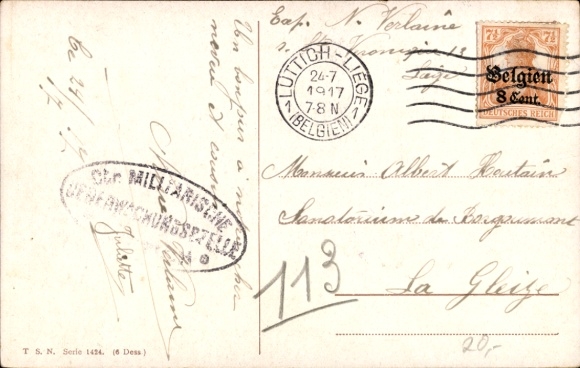 Exp. N. Verlaine
Liége
LÜTTICH - LIÉGE
24-7
1917
7-8 N
1 (BELGIEN) 1
7½ 7½
Belgien
8 Cent.
DEUTSCHES REICH
Un bonjour à
Le 24/7
17
Juliette
Verlaine
MILITÄRISCHE
UEBERWACHUNGSSTELLE
Monsieur Albert Houtain
Sanatorium de Borgoumont
La Gleize
113
20,-
T S. N. Serie 1424. (6 Dess)